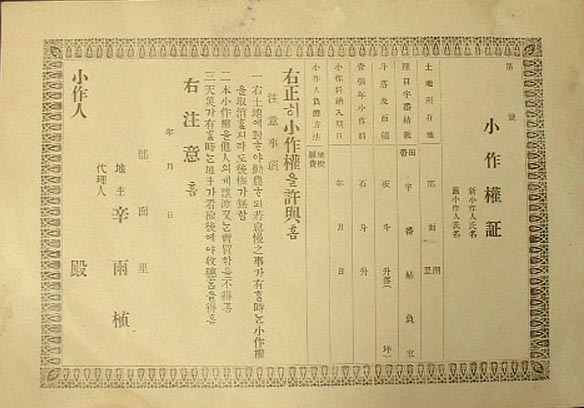 第 號
小作權証
新小作人氏名
舊小作人氏名
土地所在地 郡 面 洞里
種目字番結數 田畓 字 番 結 負 束
斗落及面積 夜 斗 升落( 坪)
壹個年小作料 石 斗 升
小作料納入期日 年 月 日
小作人負擔方法
右正히小作權을許與홈
注意事項
一 右土地에對ᄒᆞ야勤農ᄒᆞ되若怠慢之事가有ᄒᆞᆯ時ᄂᆞᆫ小作權
을取消ᄒᆞᆯ지라도後悔가無ᄒᆞᆷ
二 本小作權을他人의게讓渡又ᄂᆞᆫ賣買ᄒᆞᆷ을不得홈
三 天災가有ᄒᆞᆯ時ᄂᆞᆫ地主가看檢後에야收穫홈을得홈
右注意홈
年 月 日
郡 面 里
地主 辛雨植
代理人
小作人 殿